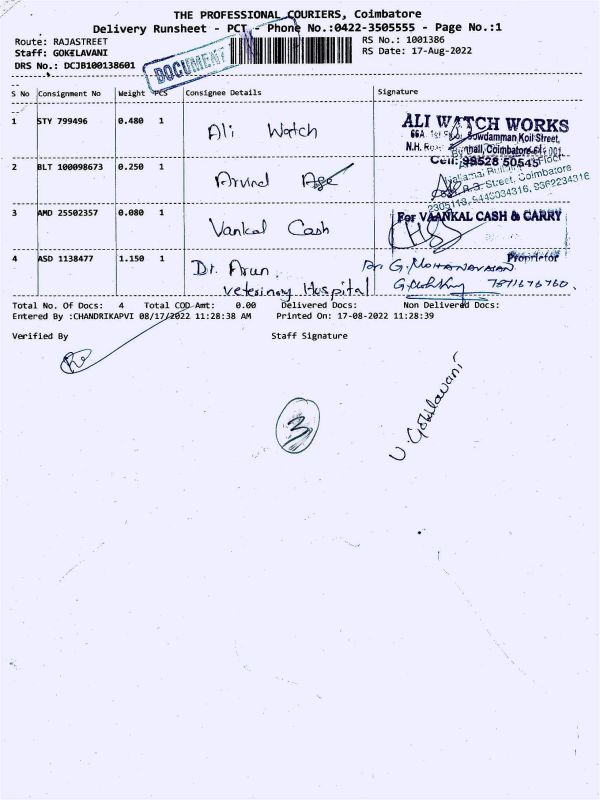 THE PROFESSIONAL COURIERS, Coimbatore
Delivery Runsheet - PCT - Phone No.:0422-3505555 - Page No.:1
Route: RAJASTREET
RS No.: 1001386
Staff: GOKELAVANI
RS Date: 17-Aug-2022
DRS No.: DCJB100138601
DOCUMENT
S No Consignment No Weight PCS Consignee Details Signature
1 STY 799496 0.480 1 Ali Watch
ALI WATCH WORKS
66A, 1st Gowdamman Koil Street,
N.H. Coimbatore-641 001.
Cell: 98528 50545
2 BLT 100098673 0.250 1 Arvind Age
R.G. Street, Coimbatore
9362234316
3 AMD 25502357 0.080 1 Vankal Cash
For VAANKAL CASH & CARRY
Proprietor
4 ASD 1138477 1.150 1 Dr. Arun.
veterinary Hospital
G. MOHANAVASAN
7871676760.
Total No. Of Docs: 4 Total COD Amt: 0.00 Delivered Docs: Non Delivered Docs:
Entered By :CHANDRIKAPVI 08/17/2022 11:28:38 AM Printed On: 17-08-2022 11:28:39
Verified By Staff Signature
3
U. Gokilavani